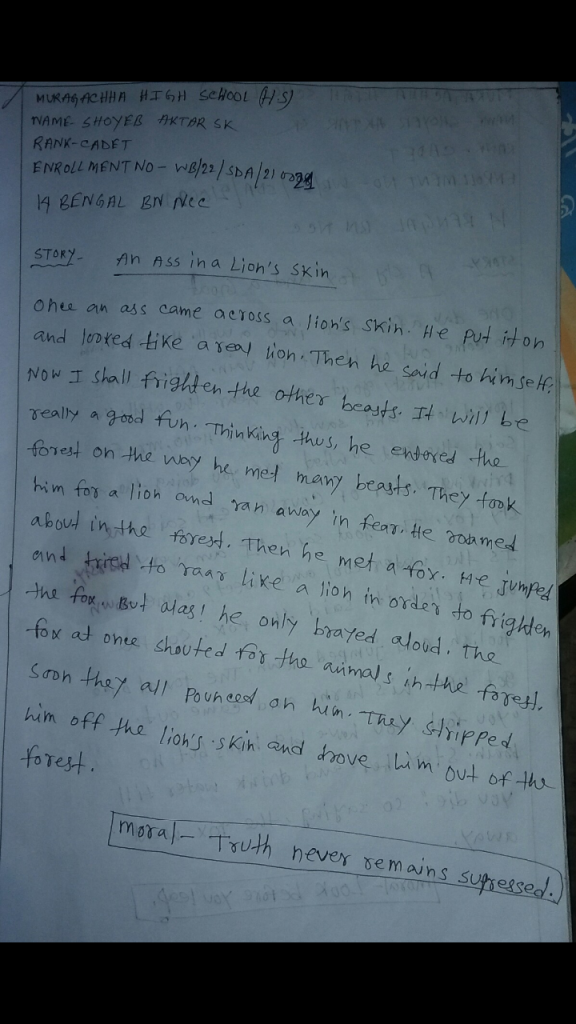 MURAGACHHA HIGH SCHOOL (HS)
NAME- SHOYEB AKTAR SK
RANK-CADET
ENROLLMENT NO - WB/22/SDA/21
14 BENGAL BN NCC
STORY- An Ass in a Lion's Skin
Once an ass came across a lion's skin. He put it on
and looked like a real lion. Then he said to himself,
NOW I shall frighten the other beasts. It will be
really a good fun. Thinking thus, he entered the
forest on the way he met many beasts. They took
him for a lion and ran away in fear. He roamed
about in the forest. Then he met a fox. He jumped
and tried to raar like a lion in order to frighten
the fox. But alas! he only brayed aloud. The
fox at once shouted for the animals in the forest.
Soon they all Pounced on him. They stripped
him off the lion's skin and drove him out of the
forest.
Moral- Truth never remains supressed.